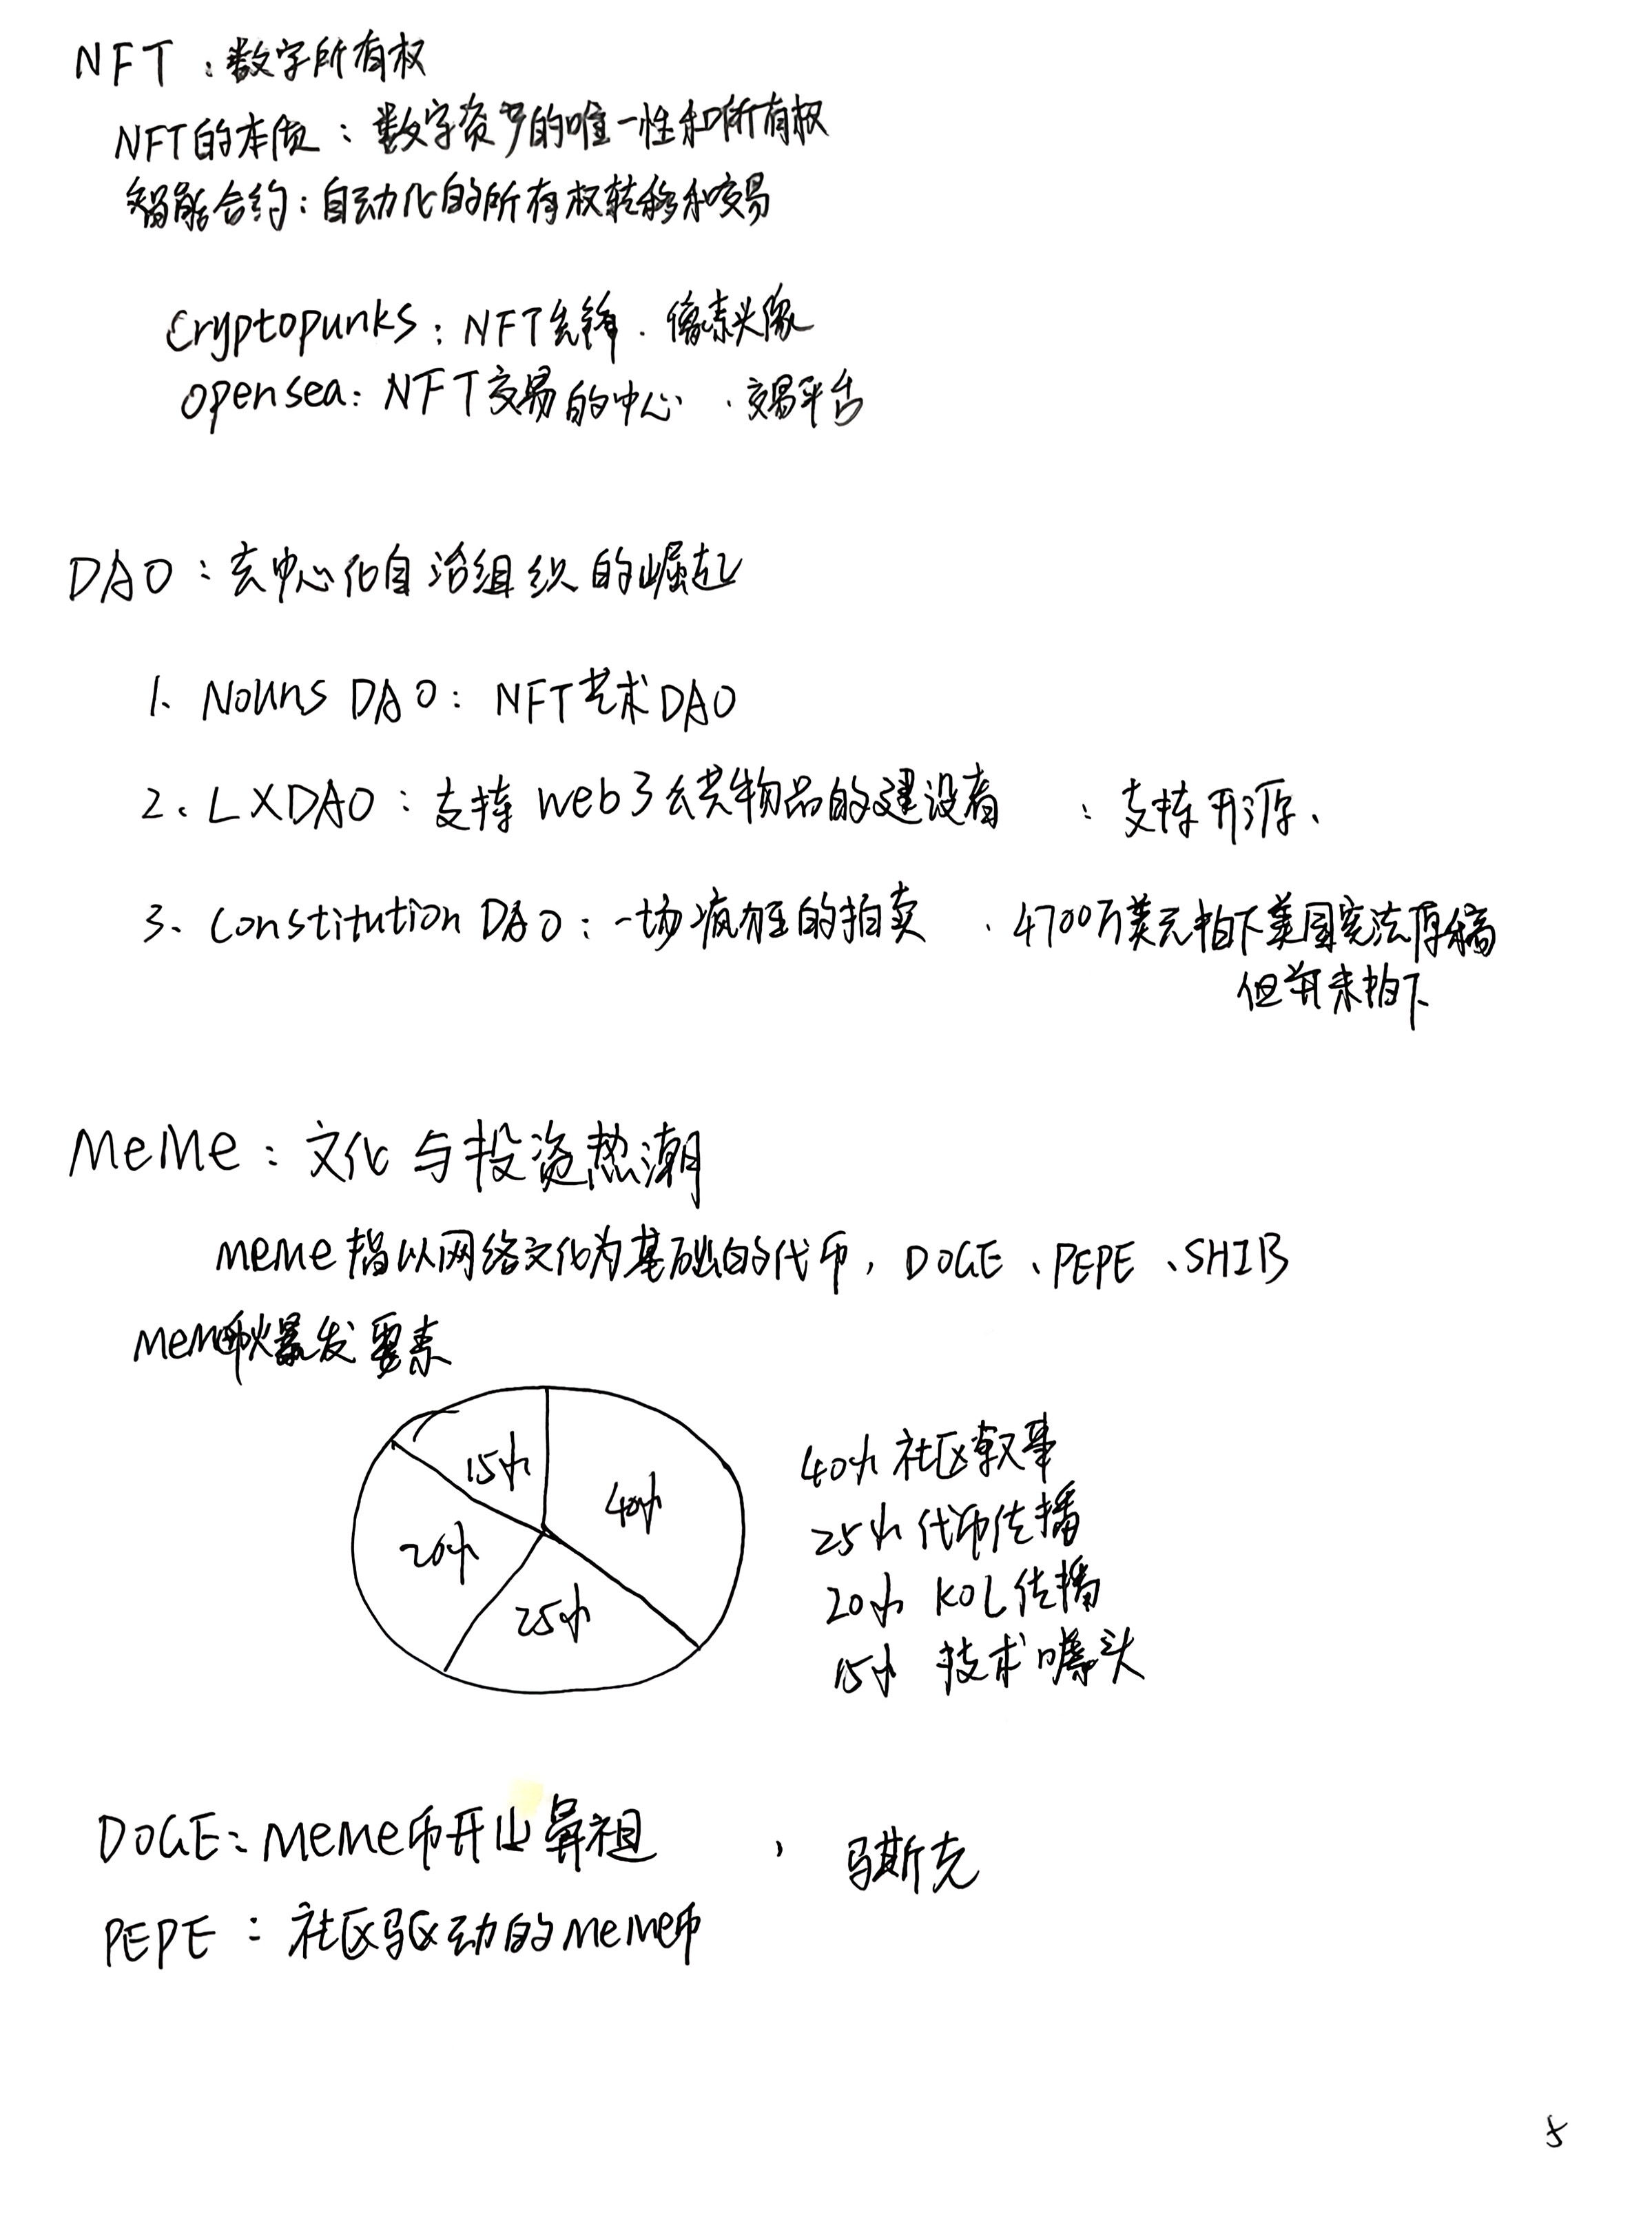 NFT：数字所有权
NFT的本质：数字资产的唯一性和所有权
智能合约：自动化的所有权转移和交易
Cryptopunks：NFT先锋．像素头像
opensea：NFT交易的中心．交易平台
DAO：去中心化自治组织的崛起
1、Nouns DAO：NFT艺术DAO
2、LXDAO：支持web3公共物品的建设者：支持开源、
3、Constitution DAO：一场疯狂的拍卖．4700万美元拍下美国宪法原稿
但并未拍下
MeMe：文化与投资热潮
meme指以网络文化为基础的代币，DOGE、PEPE、SHIB
meme币火爆发要素
15% 40%
20% 25%
40% 社区叙事
25% 代币传播
20% KOL传播
15% 技术噱头
DOGE：MEME币开山鼻祖，马斯克
PEPE：社区驱动的MEME币
5